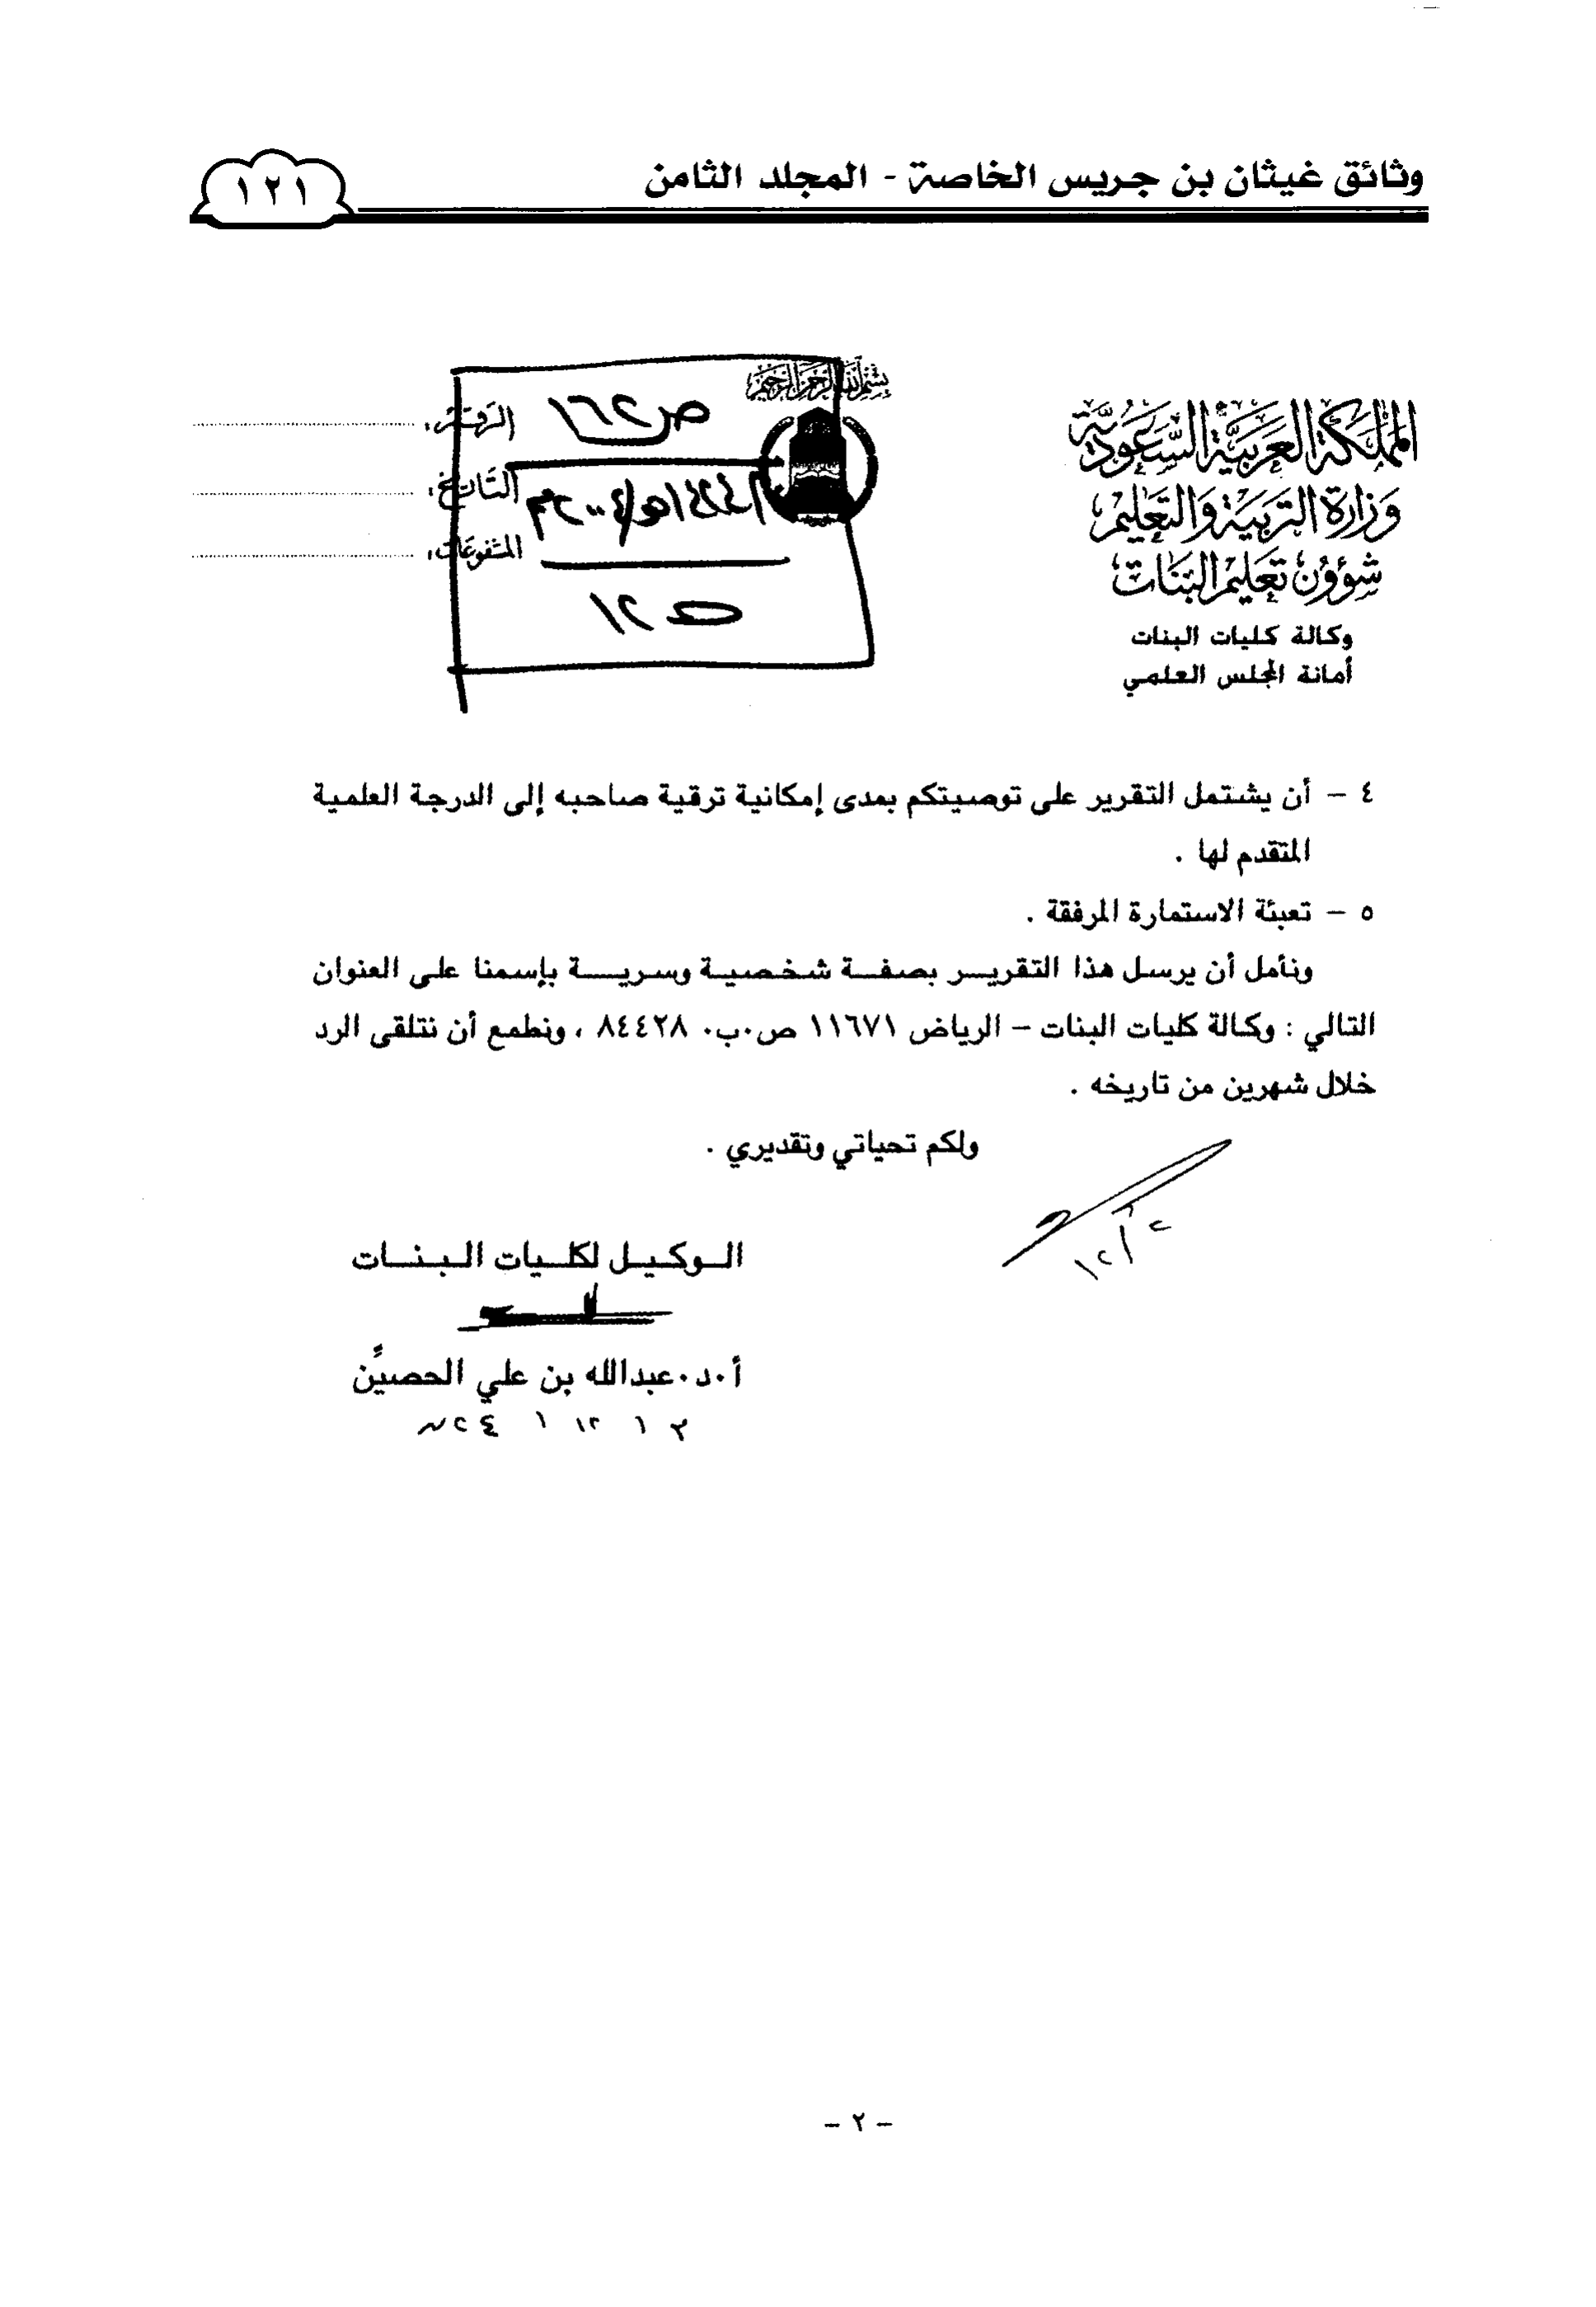 وثائق غيثان بن جريس الخاصة - المجلد الثامن
١٢١
بسم الله الرحمن الرحيم
المملكة العربية السعودية
وزارة التربية والتعليم
شؤون تعليم البنات
وكالة كليات البنات
أمانة المجلس العلمي
الرقم :
التاريخ :
المشفوعات :
ص ١٦٢
١٤٢٤هـ/٢٠٠٤م
٤ - أن يشتمل التقرير على توصيتكم بمدى إمكانية ترقية صاحبه إلى الدرجة العلمية
المتقدم لها .
٥ - تعبئة الاستمارة المرفقة .
ونأمل أن يرسل هذا التقرير بصفة شخصية وسرية بإسمنا على العنوان
التالي : وكالة كليات البنات - الرياض ١١٦٧١ ص.ب. ٨٤٤٢٨ ، ونطمع أن نتلقى الرد
خلال شهرين من تاريخه .
ولكم تحياتي وتقديري .
١٢/٢
الوكيل لكليات البنات
أ.د.عبدالله بن علي الحصيّن
- ٢ -